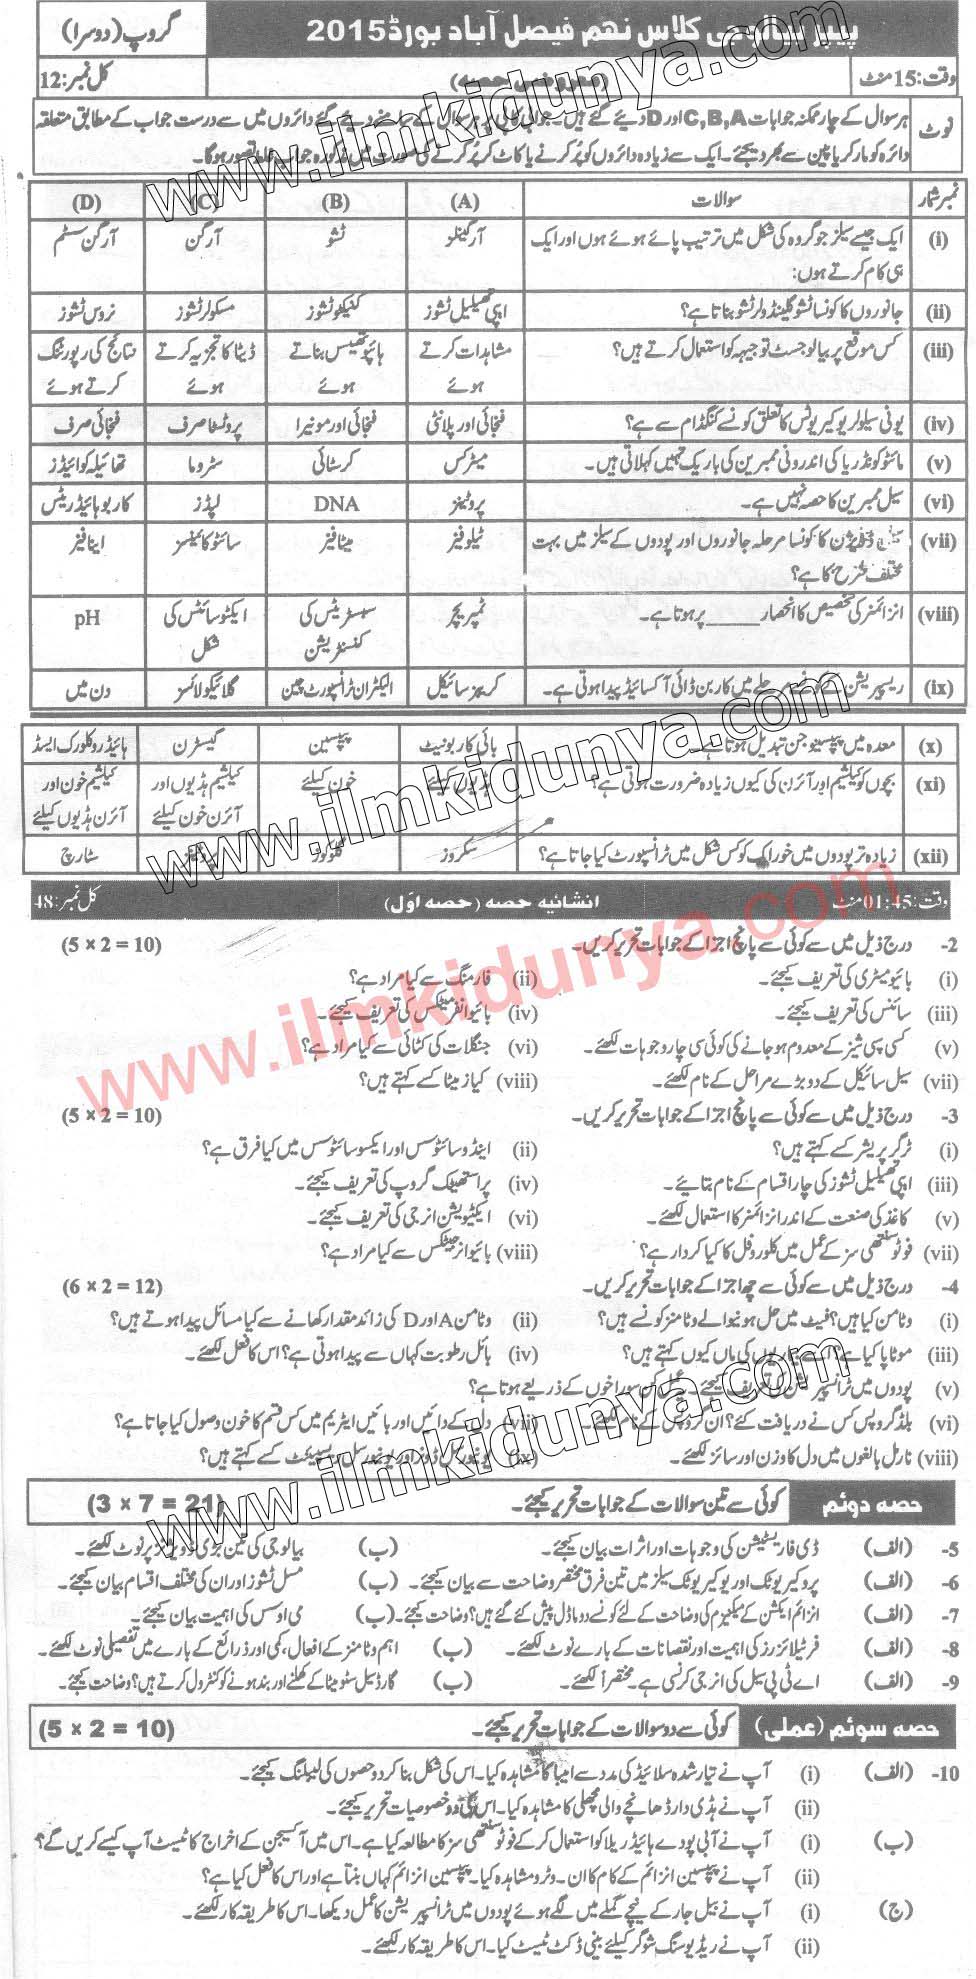 پیپر بیالوجی کلاس نہم فیصل آباد بورڈ 2015 گروپ (دوسرا)
وقت: 15 منٹ (معروضی حصہ) کل نمبر: 12
نوٹ ہر سوال کے چار ممکنہ جوابات C,B,A اور D دیے گئے ہیں۔ جوابی کاپی پر ہر سوال کے سامنے دیے گئے دائروں میں سے درست جواب کے مطابق متعلقہ
دائرہ کو مارکر یا پین سے بھر دیجئے۔ ایک سے زیادہ دائروں کو پُر کرنے یا کاٹ کر پُر کرنے کی صورت میں مذکورہ جواب غلط تصور ہوگا۔
نمبر شمار سوالات (A) (B) (C) (D)
(i) ایک جیسے سیلز جو گروہ کی شکل میں ترتیب پائے ہوئے ہوں اور ایک آرگنیلو ٹشو آرگن آرگن سسٹم
ہی کام کرتے ہوں:
(ii) جانوروں کا کونسا ٹشو گلینڈولر ٹشو بناتا ہے؟ اپی تھیلیل ٹشوز کنیکٹو ٹشوز مسکولر ٹشوز نروس ٹشوز
(iii) کس موقع پر بیالوجسٹ توجیہہ کو استعمال کرتے ہیں؟ مشاہدات کرتے ہائپوتھیسس بناتے ڈیٹا کا تجزیہ کرتے نتائج کی رپورٹنگ
ہوئے ہوئے ہوئے کرتے ہوئے
(iv) یونی سیلولر یوکیریوٹس کا تعلق کونسے کنگڈام سے ہے؟ فنجائی اور پلانٹی فنجائی اور مونیرا پروٹسٹا صرف فنجائی صرف
(v) مائٹوکونڈریا کی اندرونی ممبرین کی باریک تہیں کہلاتی ہیں۔ میٹرکس کرسٹائی سٹروما تھائیلاکوائیڈز
(vi) سیل ممبرین کا حصہ نہیں ہے۔ پروٹینز DNA لپڈز کاربوہائیڈریٹس
(vii) سیل ڈویژن کا کونسا مرحلہ جانوروں اور پودوں کے سیلز میں بہت ٹیلوفیز میٹافیز سائٹوکائینسز اینافیز
مختلف طرح کا ہے؟
(viii) انزائمز کی تخصیص کا انحصار ____ پر ہوتا ہے۔ ٹمپریچر سبسٹریٹس کی ایکٹو سائٹس کی pH
کنسنٹریشن شکل
(ix) ریسپریشن کے کونسے مرحلے میں کاربن ڈائی آکسائیڈ پیدا ہوتی ہے۔ کربز سائیکل الیکٹران ٹرانسپورٹ چین گلائیکولائسز دن میں
(x) معدہ میں پیپسینوجن تبدیل ہوتا ہے۔ بائی کاربونیٹ پیپسین گیسٹرن ہائیڈروکلورک ایسڈ
(xi) بچوں کو کیلشیم اور آئرن کی کیوں زیادہ ضرورت ہوتی ہے؟ ہڈیوں کیلئے خون کیلئے کیلشیم ہڈیوں اور کیلشیم خون اور
آئرن خون کیلئے آئرن ہڈیوں کیلئے
(xii) زیادہ تر پودوں میں خوراک کو کس شکل میں ٹرانسپورٹ کیا جاتا ہے؟ سکروز گلوکوز پروٹینز سٹارچ
وقت: 01:45 منٹ انشائیہ حصہ (حصہ اوّل) کل نمبر: 48
2- درج ذیل میں سے کوئی سے پانچ اجزا کے جوابات تحریر کریں۔ (5 × 2 = 10)
(i) بائیومیٹری کی تعریف کیجئے۔ (ii) فارمنگ سے کیا مراد ہے؟
(iii) سائنس کی تعریف کیجئے۔ (iv) بائیو انفرمیٹکس کی تعریف کیجئے۔
(v) کسی سپی شیز کے معدوم ہو جانے کی کوئی سی چار وجوہات لکھئے۔ (vi) جنگلات کی کٹائی سے کیا مراد ہے؟
(vii) سیل سائیکل کے دو بڑے مراحل کے نام لکھئے۔ (viii) کیازمیٹا کسے کہتے ہیں؟
3- درج ذیل میں سے کوئی سے پانچ اجزا کے جوابات تحریر کریں۔ (5 × 2 = 10)
(i) ٹرگر پریشر کسے کہتے ہیں؟ (ii) اینڈوسائٹوسس اور ایکسوسائٹوسس میں کیا فرق ہے؟
(iii) اپی تھیلیل ٹشوز کی چار اقسام کے نام بتائیے۔ (iv) پراستھیٹک گروپ کی تعریف کیجئے۔
(v) کاغذ کی صنعت کے اندر انزائمز کا استعمال لکھئے۔ (vi) ایکٹیویشن انرجی کی تعریف کیجئے۔
(vii) فوٹوسنتھی سز کے عمل میں کلوروفل کا کیا کردار ہے؟ (viii) بائیو انرجیٹکس سے کیا مراد ہے؟
4- درج ذیل میں سے کوئی سے چھ اجزا کے جوابات تحریر کریں۔ (6 × 2 = 12)
(i) وٹامن کیا ہیں؟ فیٹ میں حل ہونیوالے وٹامنز کونسے ہیں؟ (ii) وٹامن A اور D کی زائد مقدار کھانے سے کیا مسائل پیدا ہوتے ہیں؟
(iii) موٹاپا کیا ہے؟ اسے بیماریوں کی ماں کیوں کہتے ہیں؟ (iv) بائل رطوبت کہاں سے پیدا ہوتی ہے؟ اس کا فعل لکھئے۔
(v) پودوں میں ٹرانسپریشن کی تعریف کیجئے۔ یہ عمل کن سوراخوں کے ذریعے ہوتا ہے؟
(vi) بلڈ گروپس کس نے دریافت کئے؟ ان گروپس کے نام لکھئے۔ (vii) دل کے دائیں اور بائیں ایٹریم میں کس قسم کا خون وصول کیا جاتا ہے؟
(viii) نارمل بالغوں میں دل کا وزن اور سائز لکھئے۔ (ix) یونیورسل ڈونرز اور یونیورسل ریسیپیئنٹ کسے کہتے ہیں؟
حصہ دوئم کوئی سے تین سوالات کے جوابات تحریر کیجئے۔ (3 × 7 = 21)
5- (الف) ڈی فاریسٹیشن کی وجوہات اور اثرات بیان کیجئے۔ (ب) بیالوجی کی تین بڑی ڈویژنز پر نوٹ لکھئے۔
6- (الف) پروکیریوٹک اور یوکیریوٹک سیلز میں تین فرق مختصر وضاحت سے بیان کیجئے۔ (ب) مسل ٹشوز اور ان کی مختلف اقسام بیان کیجئے۔
7- (الف) انزائم ایکشن کے میکنزم کی وضاحت کے لئے کونسے دو ماڈل پیش کئے گئے ہیں؟ وضاحت کیجئے۔ (ب) می اوسس کی اہمیت بیان کیجئے۔
8- (الف) فرٹیلائزرز کی اہمیت اور نقصانات کے بارے نوٹ لکھئے۔ (ب) اہم وٹامنز کے افعال، کمی اور ذرائع کے بارے میں تفصیلی نوٹ لکھئے۔
9- (الف) اے ٹی پی سیل کی انرجی کرنسی ہے۔ مختصراً لکھئے۔ (ب) گارڈ سیل سٹومیٹا کے کھلنے اور بند ہونے کو کنٹرول کرتے ہیں؟ وضاحت کیجئے۔
حصہ سوئم (عملی) کوئی سے دو سوالات کے جوابات تحریر کیجئے۔ (5 × 2 = 10)
10- (الف) (i) آپ نے تیار شدہ سلائیڈ کی مدد سے امیبا کا مشاہدہ کیا۔ اس کی شکل بنا کر دو حصوں کی لیبلنگ کیجئے۔
(ii) آپ نے ہڈی دار ڈھانچے والی مچھلی کا مشاہدہ کیا۔ اس کی دو خصوصیات تحریر کیجئے۔
(ب) (i) آپ نے آبی پودے ہائیڈریلا کو استعمال کر کے فوٹوسنتھی سز کا مطالعہ کیا ہے۔ اس میں آکسیجن کے اخراج کا ٹیسٹ آپ کیسے کریں گے؟
(ii) آپ نے پیپسن انزائم کے کام کا ان۔ وٹرو مشاہدہ کیا۔ پیپسین انزائم کہاں بنتا ہے اور اس کا فعل کیا ہے؟
(ج) (i) آپ نے بیل جار کے نیچے گملے میں لگے ہوئے پودوں میں ٹرانسپریشن کا عمل دیکھا۔ اس کا طریقہ کار لکھئے۔
(ii) آپ نے ریڈیوسنگ شوگر کیلئے بینی ڈکٹ ٹیسٹ کیا۔ اس کا طریقہ کار لکھئے۔
www.ilmkidunya.com
www.ilmkidunya.com
www.ilmkidunya.com
www.ilmkidunya.com